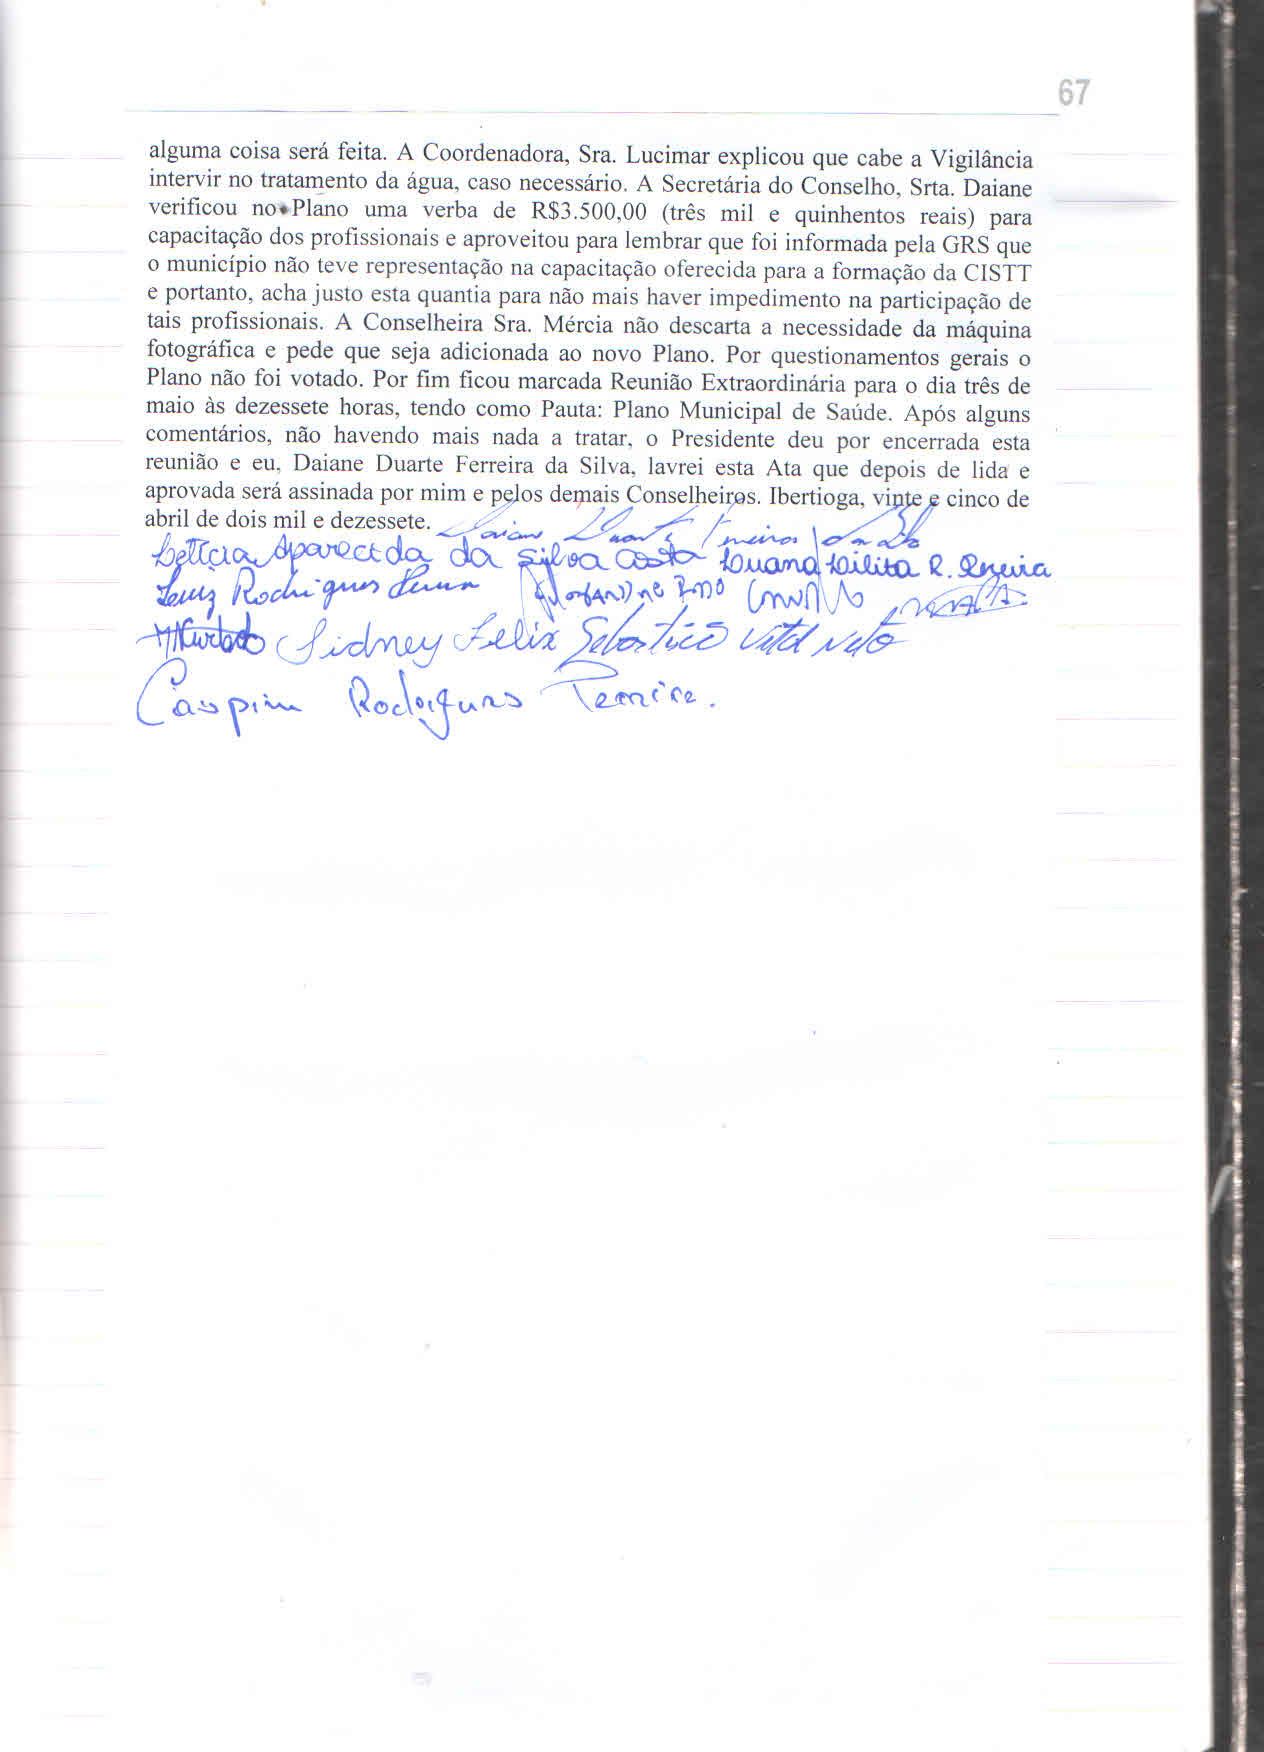 67
alguma coisa será feita. A Coordenadora, Sra. Lucimar explicou que cabe a Vigilância
intervir no tratamento da água, caso necessário. A Secretária do Conselho, Srta. Daiane
verificou no Plano uma verba de R$3.500,00 (três mil e quinhentos reais) para
capacitação dos profissionais e aproveitou para lembrar que foi informada pela GRS que
o município não teve representação na capacitação oferecida para a formação da CISTT
e portanto, acha justo esta quantia para não mais haver impedimento na participação de
tais profissionais. A Conselheira Sra. Mércia não descarta a necessidade da máquina
fotográfica e pede que seja adicionada ao novo Plano. Por questionamentos gerais o
Plano não foi votado. Por fim ficou marcada Reunião Extraordinária para o dia três de
maio às dezessete horas, tendo como Pauta: Plano Municipal de Saúde. Após alguns
comentários, não havendo mais nada a tratar, o Presidente deu por encerrada esta
reunião e eu, Daiane Duarte Ferreira da Silva, lavrei esta Ata que depois de lida e
aprovada será assinada por mim e pelos demais Conselheiros. Ibertioga, vinte e cinco de
abril de dois mil e dezessete. Daiane Duarte Ferreira da Silva
Letícia Aparecida da Silva Costa Luana R. Pereira
Luiz Rodrigues
Sidney Felix Sebastião Vital Neto
Rodrigues